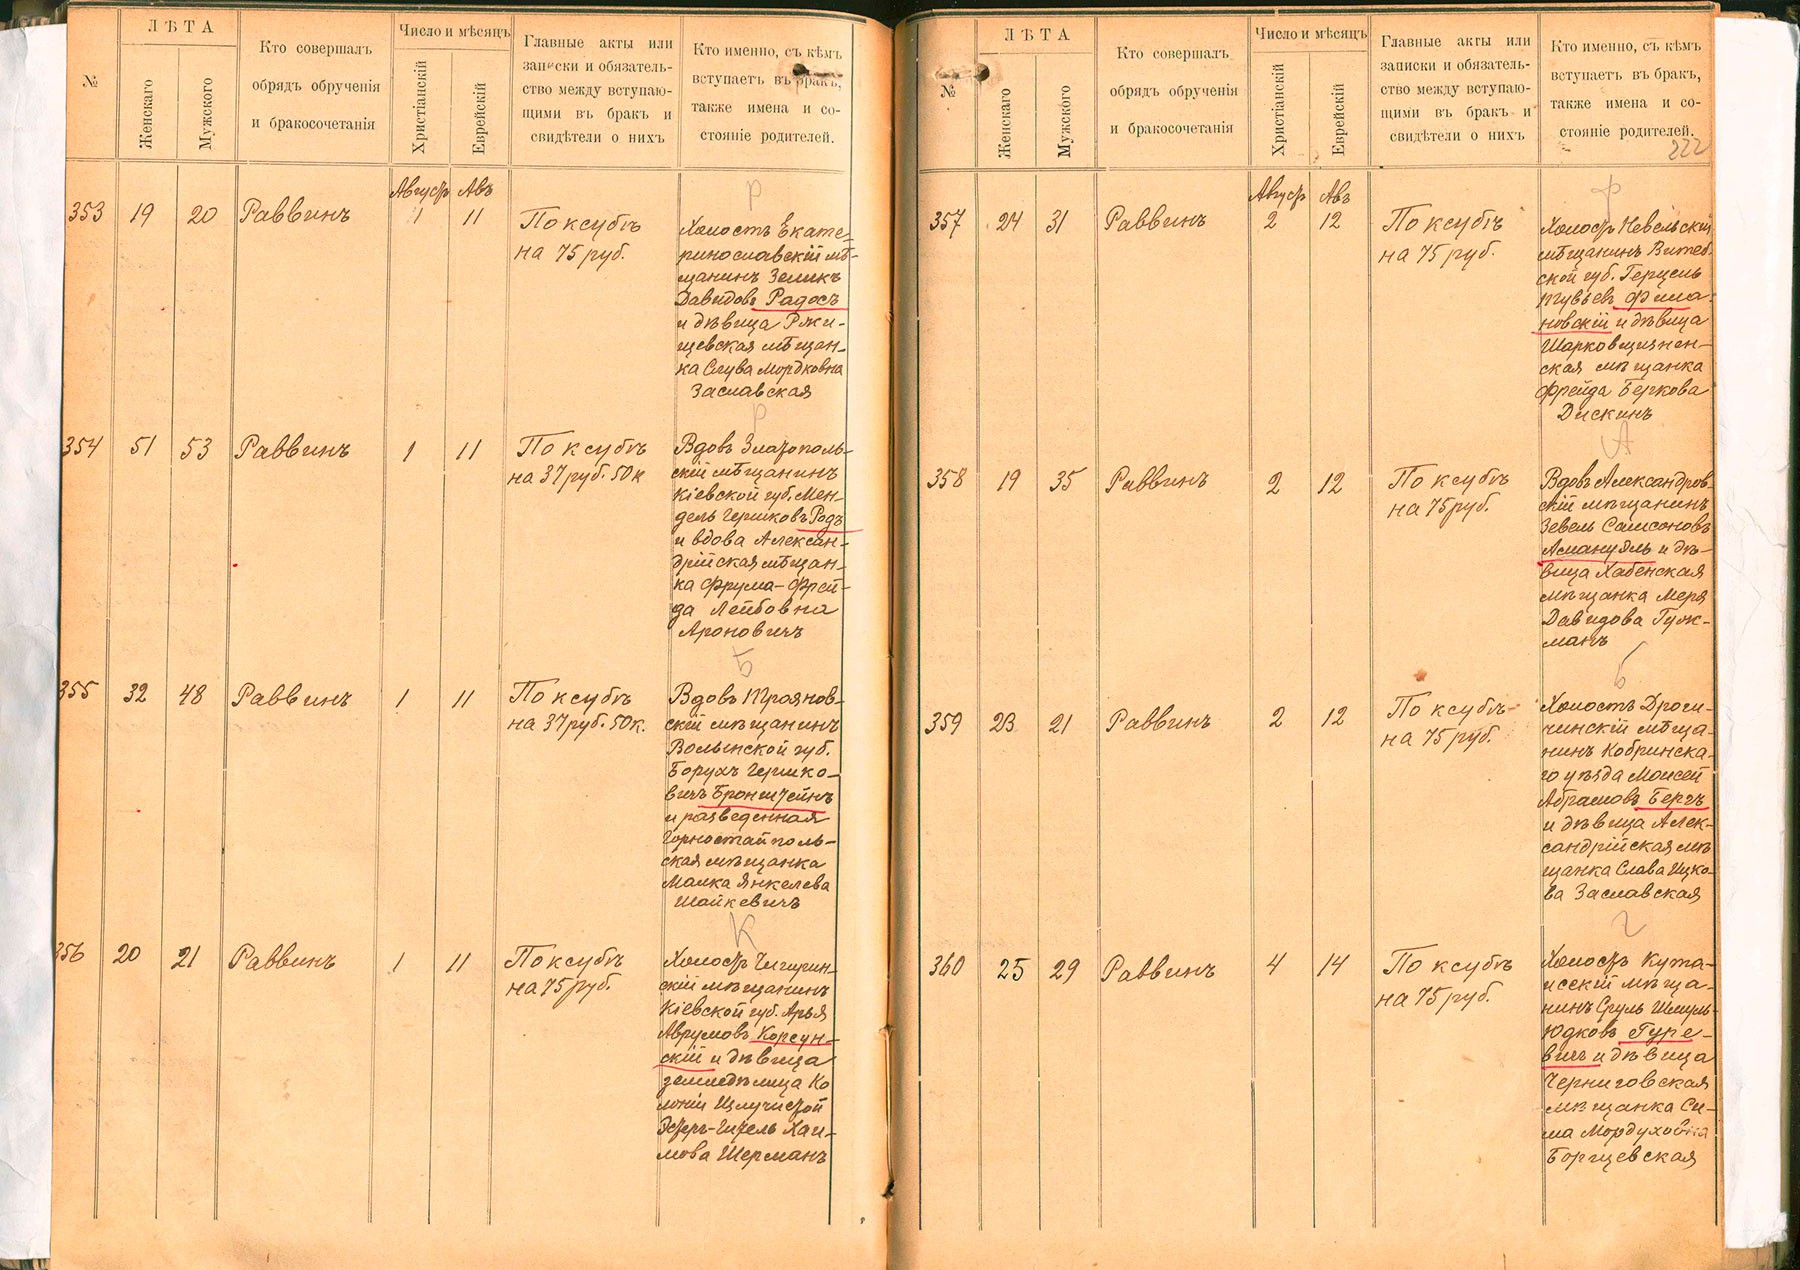 №
ЛѢТА
Женскаго
Мужского
Кто совершалъ
обрядъ обрученія
и бракосочетанія
Число и мѣсяцъ
Христіанскій
Еврейскій
Главные акты или
записки и обязатель-
ство между вступаю-
щими въ бракъ и
свидѣтели о нихъ
Кто именно, съ кѣмъ
вступаетъ въ бракъ,
также имена и со-
стояніе родителей.
Августъ Авъ
Р
353 19 20 Раввинъ 1 11
По ксубѣ
на 75 руб.
Холостъ Екате-
ринославскій мѣ-
щанинъ Зеликъ
Давидовъ Радосъ
и дѣвица Ржи-
щевская мѣщан-
ка Слува Мордковна
Заславская
Р
354 51 53 Раввинъ 1 11
По ксубѣ
на 37 руб. 50 к
Вдовъ Златополь-
скій мѣщанинъ
Кіевской губ. Мен-
дель Гершковъ Родъ
и вдова Алексан-
дрійская мѣщан-
ка Фрума-Фрей-
да Лейбовна
Ароновичъ
Б
355 32 48 Раввинъ 1 11
По ксубѣ
на 37 руб. 50 к.
Вдовъ Трояновъ-
скій мѣщанинъ
Волынской губ.
Борухъ Гершко-
вичъ Бронштейнъ
и разведенная
Горностайполь-
ская мѣщанка
Малка Янкелева
Шайкевичъ
К
356 20 21 Раввинъ 1 11
По ксубѣ
на 75 руб.
Холостъ Чигирин-
скій мѣщанинъ
Кіевской губ. Арья
Аврумовъ Корсун-
скій и дѣвица
земледѣлица Ко
лоніи Излучистой
Эстеръ-Гитель Хаи-
мова Шерманъ
№
ЛѢТА
Женскаго
Мужского
Кто совершалъ
обрядъ обрученія
и бракосочетанія
Число и мѣсяцъ
Христіанскій
Еврейскій
Главные акты или
записки и обязатель-
ство между вступаю-
щими въ бракъ и
свидѣтели о нихъ
Кто именно, съ кѣмъ
вступаетъ въ бракъ,
также имена и со-
стояніе родителей.
222
Августъ Авъ
Ф
357 24 31 Раввинъ 2 12
По ксубѣ
на 75 руб.
Холостъ Невельскій
мѣщанинъ Витеб-
ской губ. Герцель
Тувьевъ Фила-
новскій и дѣвица
Шарковщизнен-
ская мѣщанка
Фрейда Беркова
Дискинъ
А
358 19 35 Раввинъ 2 12
По ксубѣ
на 75 руб.
Вдовъ Александров-
скій мѣщанинъ
Зевель Самсоновъ
Асмануяль и дѣ-
вица Хабенская
мѣщанка Меря
Давидова Гуж-
манъ
Б
359 23 21 Раввинъ 2 12
По ксубѣ
на 75 руб.
Холостъ Дроги-
чинскій мѣща-
нинъ Кобринска-
го уѣзда Моисей
Абрамовъ Бергъ
и дѣвица Алек-
сандрійская мѣ
щанка Слава Ицко-
ва Заславская
Г
360 25 29 Раввинъ 4 14
По ксубѣ
на 75 руб.
Холостъ Кута-
исскій мѣща-
нинъ Сруль Шмуль-
Юдковъ Гуре-
вичъ и дѣвица
Черниговская
мѣщанка Си-
ма Мордуховна
Борщевская